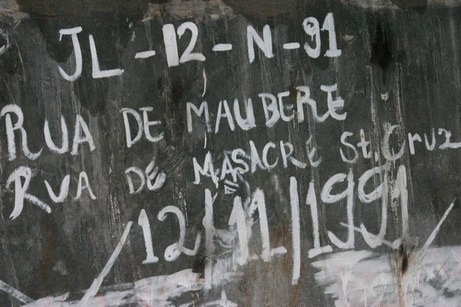 JL-12-N-91
RUA DE MAUBERE
RUA DE MASACRE St. Cruz
12/11/1991